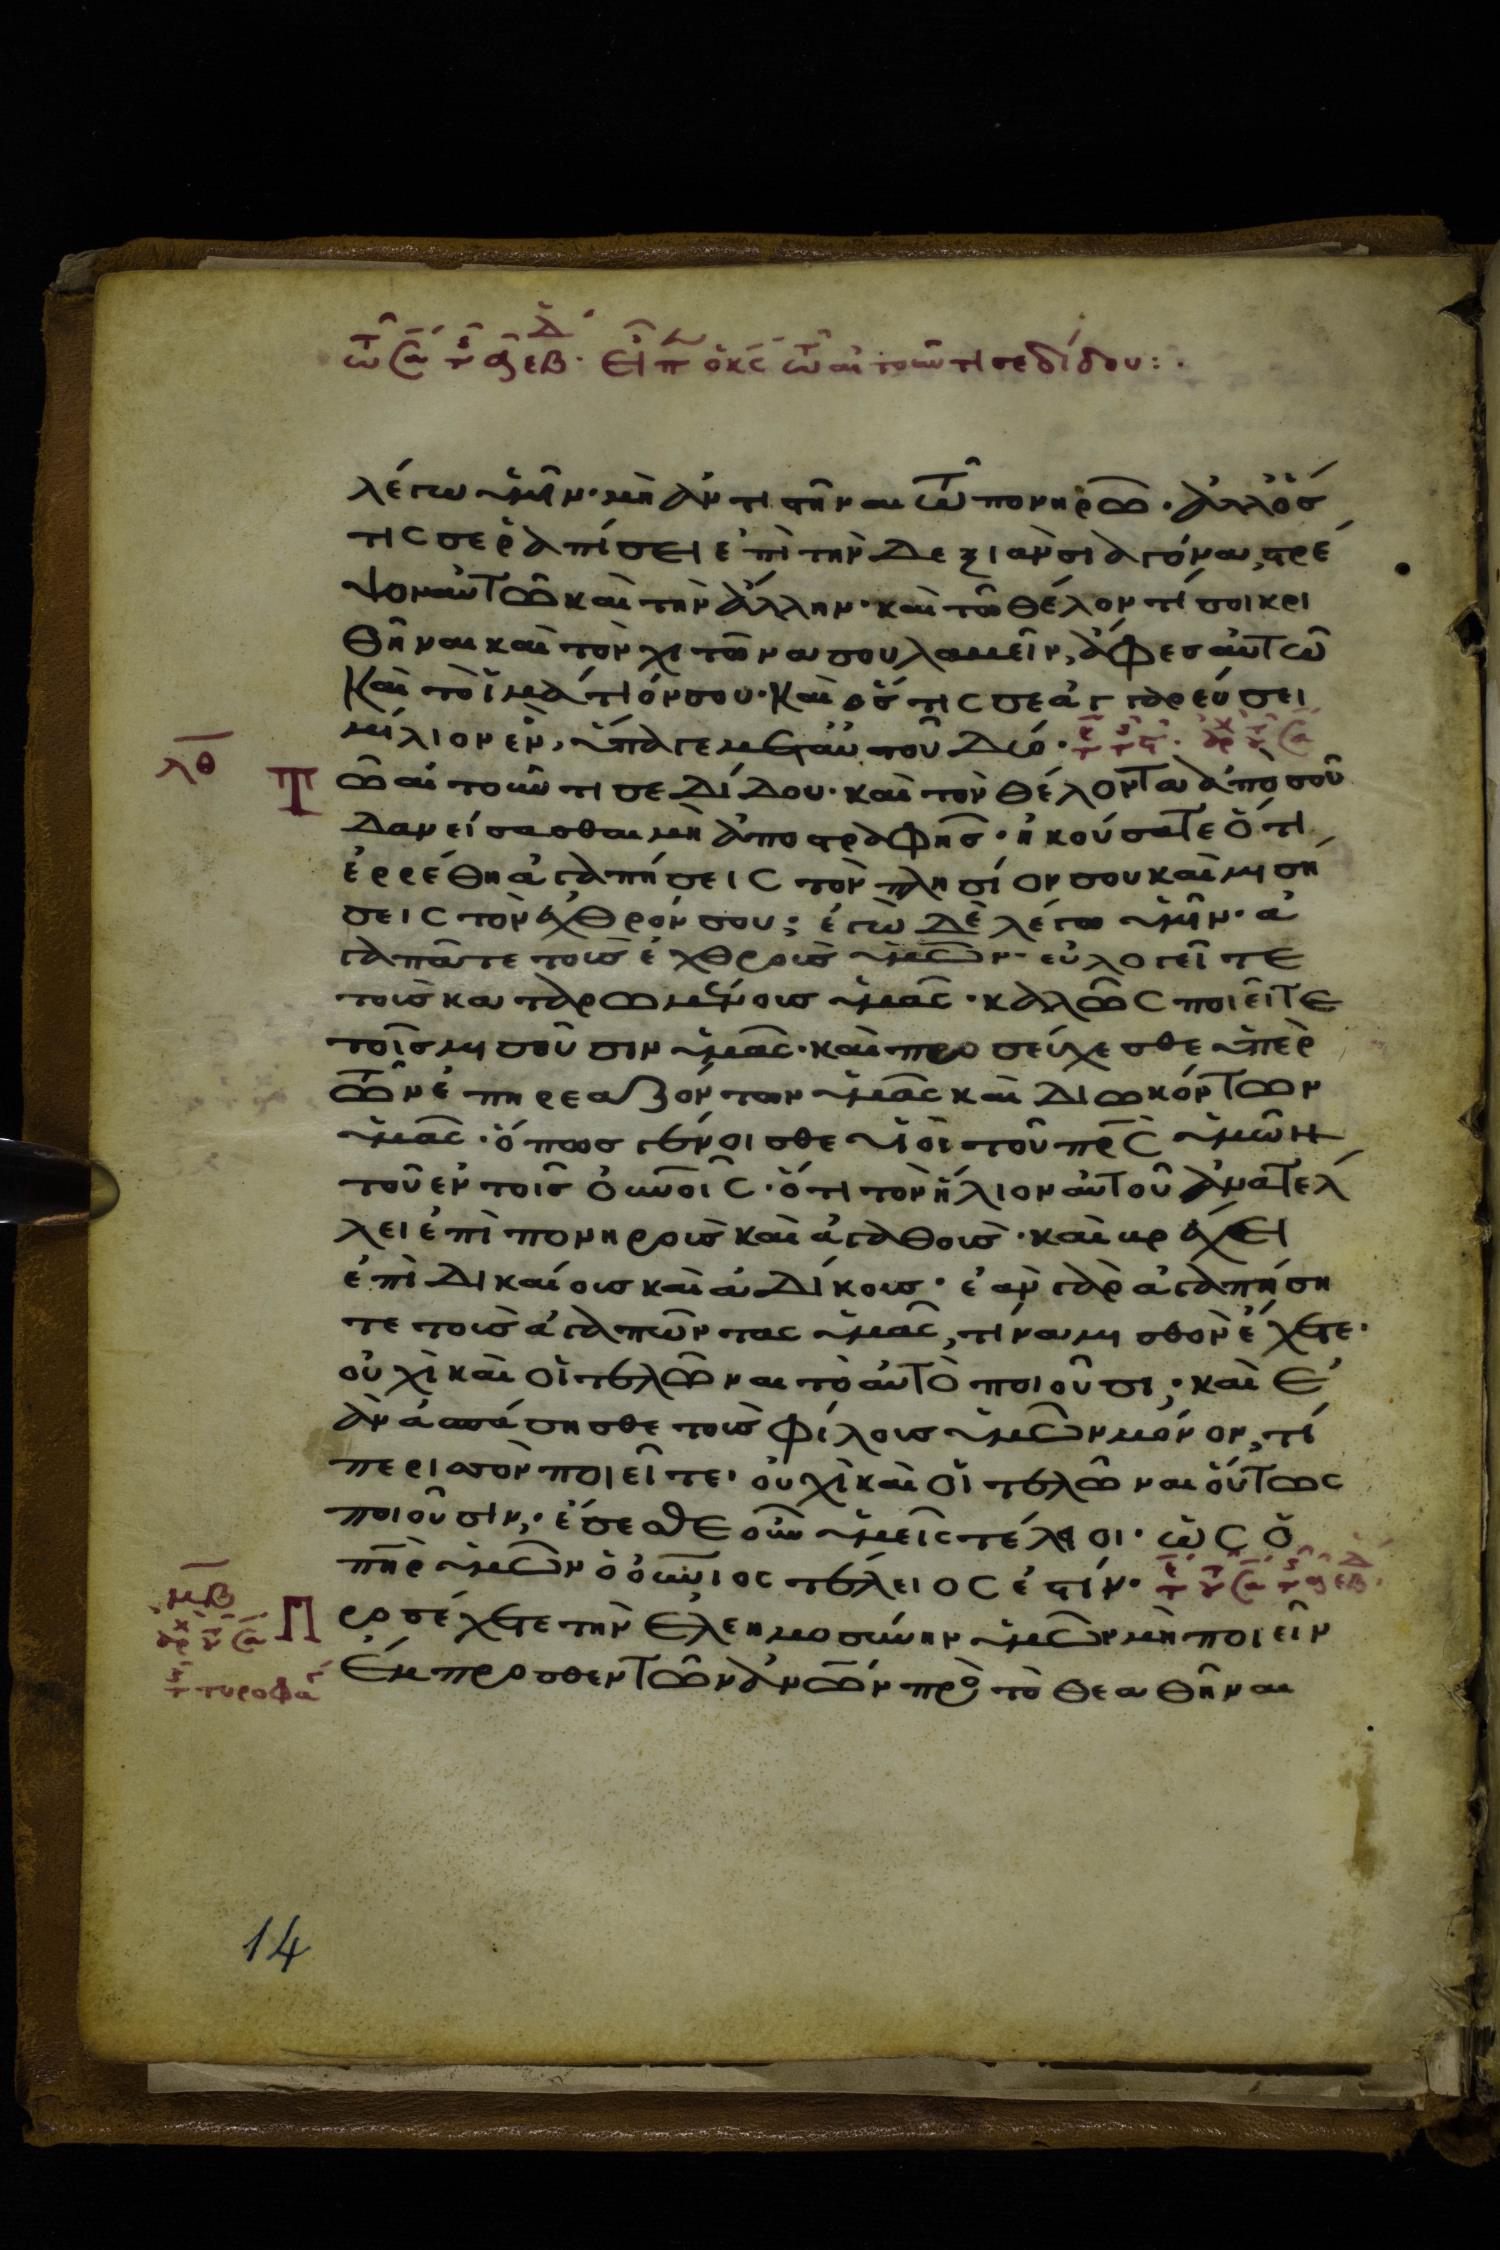 λέγω ὑμῖν· μὴ ἀντιστῆναι τῶ πονηρῶ· ἀλλ ὅσ
τις σε ῥαπίσει ἐπὶ τὴν δεξιὰν σιαγόνα, στρέ
ψον αὐτῶ καὶ τὴν ἄλλην· καὶ τῶ θέλοντί σοι κρι
θῆναι καὶ τὸν χιτῶνα σου λαβεῖν, ἄφες αὐτῶ
Καὶ τὸ ἱμάτιόν σου· Καὶ ὅστις σε ἀγγαρεύσει
μίλιον ἕν, ὕπαγε μετ αὐτοῦ δύο·
λθ
Τ
ῶ αἰτοῦντι σε δίδου· καὶ τὸν θέλοντα ἀπὸ σοῦ
δανείσασθαι μὴ ἀποστραφῆς· ἠκούσατε ὅτι
ἐρρέθη ἀγαπήσεις τὸν πλησίον σου καὶ μιση
σεις τὸν ἐχθρόν σου; ἐγὼ δὲ λέγω ὑμῖν· ἀ
γαπᾶτε τοὺς ἐχθροὺς ὑμῶν· εὐλογεῖτε
τοὺς καταρωμένους ὑμᾶς· καλῶς ποιεῖτε
τοῖς μισοῦσιν ὑμᾶς· καὶ προσεύχεσθε ὑπὲρ
τῶν ἐπηρεαζόντων ὑμᾶς καὶ διωκόντων
ὑμᾶς· ὅπως γένοισθε υἱοὶ τοῦ πρς ὑμῶν
τοῦ ἐν τοῖς οὐνοῖς· ὅτι τὸν ἥλιον αὐτοῦ ἀνατέλ
λει ἐπὶ πονηροὺς καὶ ἀγαθοὺς· καὶ βρέχει
ἐπὶ δικαίους καὶ ἀδίκους· ἐὰν γὰρ ἀγαπήση
τε τοὺς ἀγαπῶντας ὑμᾶς, τίνα μισθὸν ἔχετε·
οὐχὶ καὶ οἱ τελῶναι τὸ αὐτὸ ποιοῦσι; καὶ ἐ
ὰν ἀσπάσησθε τοὺς φίλους ὑμῶν μόνον, τί
περισσὸν ποιεῖτε· οὐχὶ καὶ οἱ τελῶναι οὕτως
ποιοῦσιν; ἔσεσθε οὖν ὑμεῖς τέλειοι· ὡς ὁ
πηρ ὑμῶν ὁ οὐνιος τέλειος ἐστίν·
μβ
Π
ροσέχετε τὴν ἐλεημοσύνην ὑμῶν μὴ ποιεῖν
ἔμπροσθεν τῶν ἀνων πρὸς τὸ θεαθῆναι
14